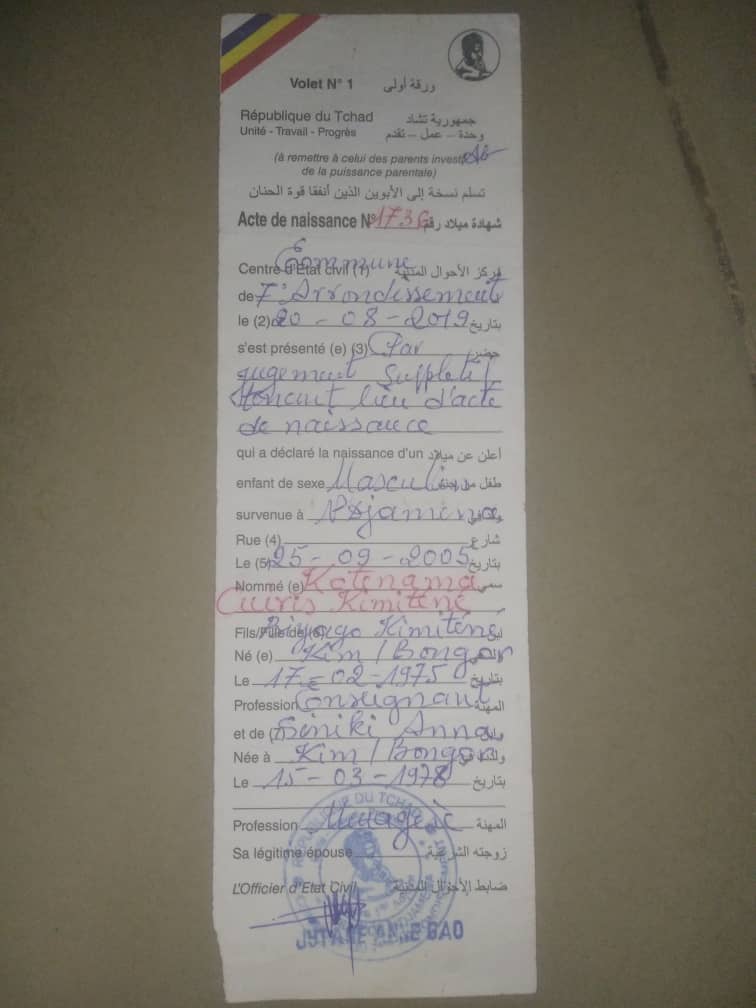 Volet N° 1 ورقة أولى
République du Tchad جمهورية تشاد
Unité - Travail - Progrès وحدة – عمل – تقدم
(à remettre à celui des parents investi
de la puissance parentale)
تسلم نسخة إلى الأبوين الذين أنفقا قوة الحنان
Acte de naissance N° 1736 شهادة ميلاد رقم
Centre d'Etat civil (1) Commune مركز الأحوال المدنية
de 7e Arrondissement
le (2) 20-08-2019 بتاريخ
s'est présenté (e) (3) Par حضر
jugement Suppletif
tenant lieu d'acte
de naissance
qui a déclaré la naissance d'un أعلن عن ميلاد
enfant de sexe Masculin طفل من
survenue à Ndjamena
Rue (4) شارع
Le (5) 25-09-2005 بتاريخ
Nommé (e) Kotenama سمي
Kimitené
Fils/Fille de (6) Kimitené ابن
Né (e) Kim / Bongor
Le 17-02-1975 بتاريخ
Profession Enseignant المهنة
et de (7) Anna
Née à Kim / Bongor
Le 15-03-1978 بتاريخ
Profession Menagère المهنة
Sa légitime épouse زوجته الشرعية
L'Officier d'Etat Civil ضابط الأحوال المدنية
REPUBLIQUE DU TCHAD
GAO